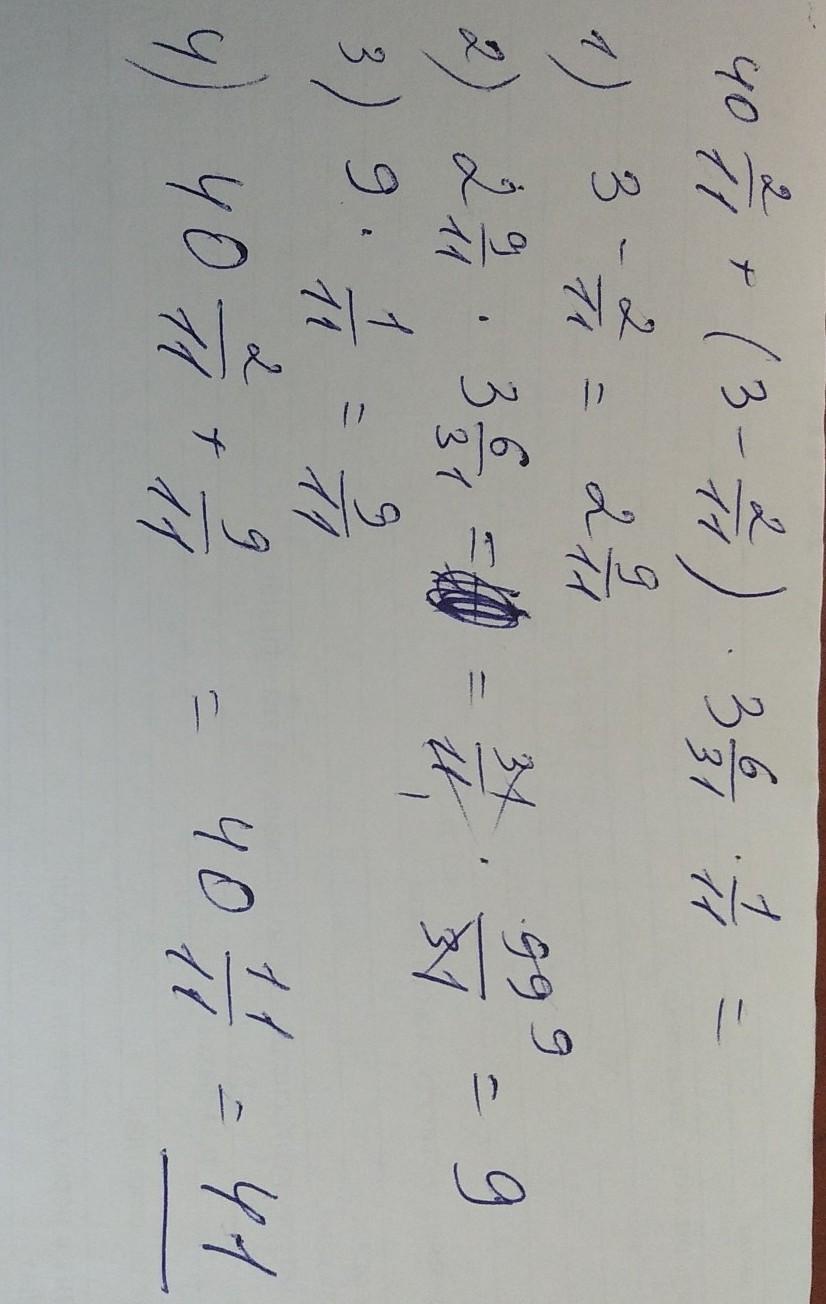 40 2/11 + (3 - 2/11) · 3 6/31 · 1/11 =
1) 3 - 2/11 = 2 9/11
2) 2 9/11 · 3 6/31 = = 31/11 · 99/31 = 9
3) 9 · 1/11 = 9/11
4) 40 2/11 + 9/11 = 40 11/11 = 41